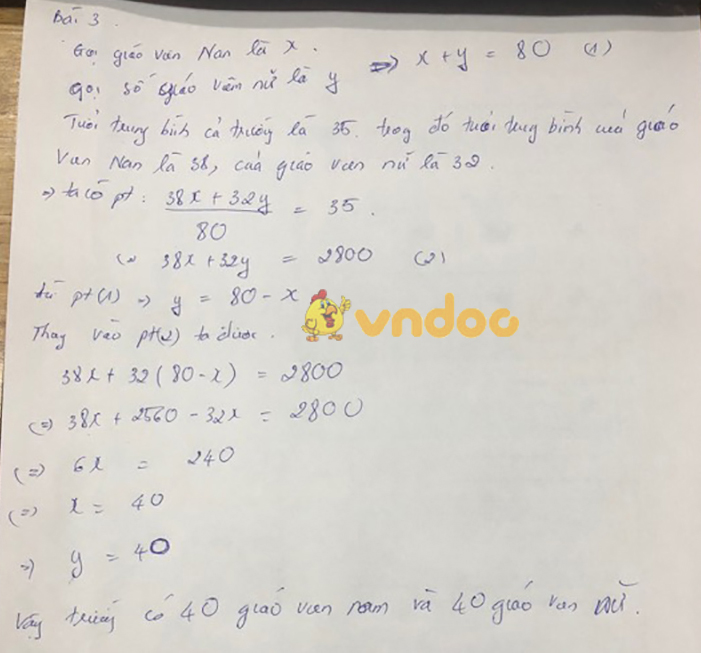 Bài 3.
Gọi giáo viên Nam là x.
Gọi số giáo viên nữ là y
=> x + y = 80 (1)
Tuổi trung bình cả trường là 35. trong đó tuổi trung bình của giáo
viên Nam là 38, của giáo viên nữ là 32.
=> ta có pt: (38x + 32y)/80 = 35.
(=) 38x + 32y = 2800 (2)
từ pt(1) => y = 80 - x
Thay vào pt(2) ta được.
vndoc
38x + 32(80-x) = 2800
(=) 38x + 2560 - 32x = 2800
(=) 6x = 240
(=) x = 40
=> y = 40
Vậy trường có 40 giáo viên nam và 40 giáo viên nữ.